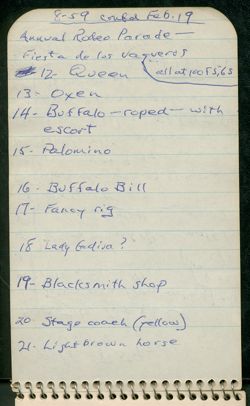 8-59 contd Feb. 19
Annual Rodeo Parade —
Fiesta de los vaqueros
12- Queen all at 100 F5,6.3
13- Oxen
14- Buffalo — roped — with
escort
15- Palomino
16- Buffalo Bill
17- Fancy rig
18 Lady Godiva?
19- Blacksmith shop
20- Stage coach (yellow)
21- Light brown horse